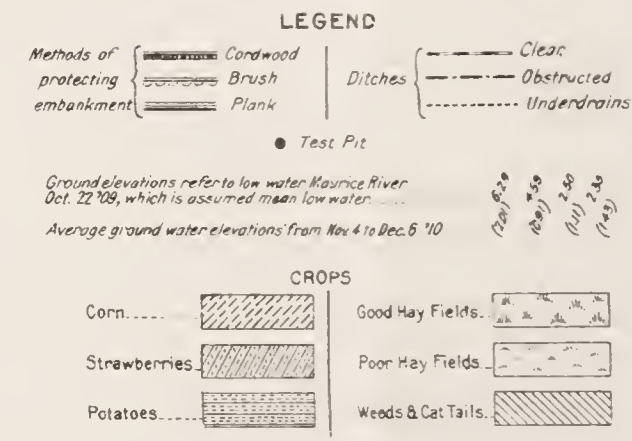 LEGEND
Methods of protecting embankment
Cordwood
Brush
Plank
Ditches
Clear
Obstructed
Underdrains
Test Pit
Ground elevations refer to low water Maurice River
Oct. 22 '09, which is assumed mean low water.....
6.29 4.59 2.50 2.33
(2.01) (0.91) (1.11) (1.43)
Average ground water elevations from Nov. 4 to Dec. 6 '10
CROPS
Corn.....
Strawberries
Potatoes.....
Good Hay Fields..
Poor Hay Fields..
Weeds & Cat Tails..